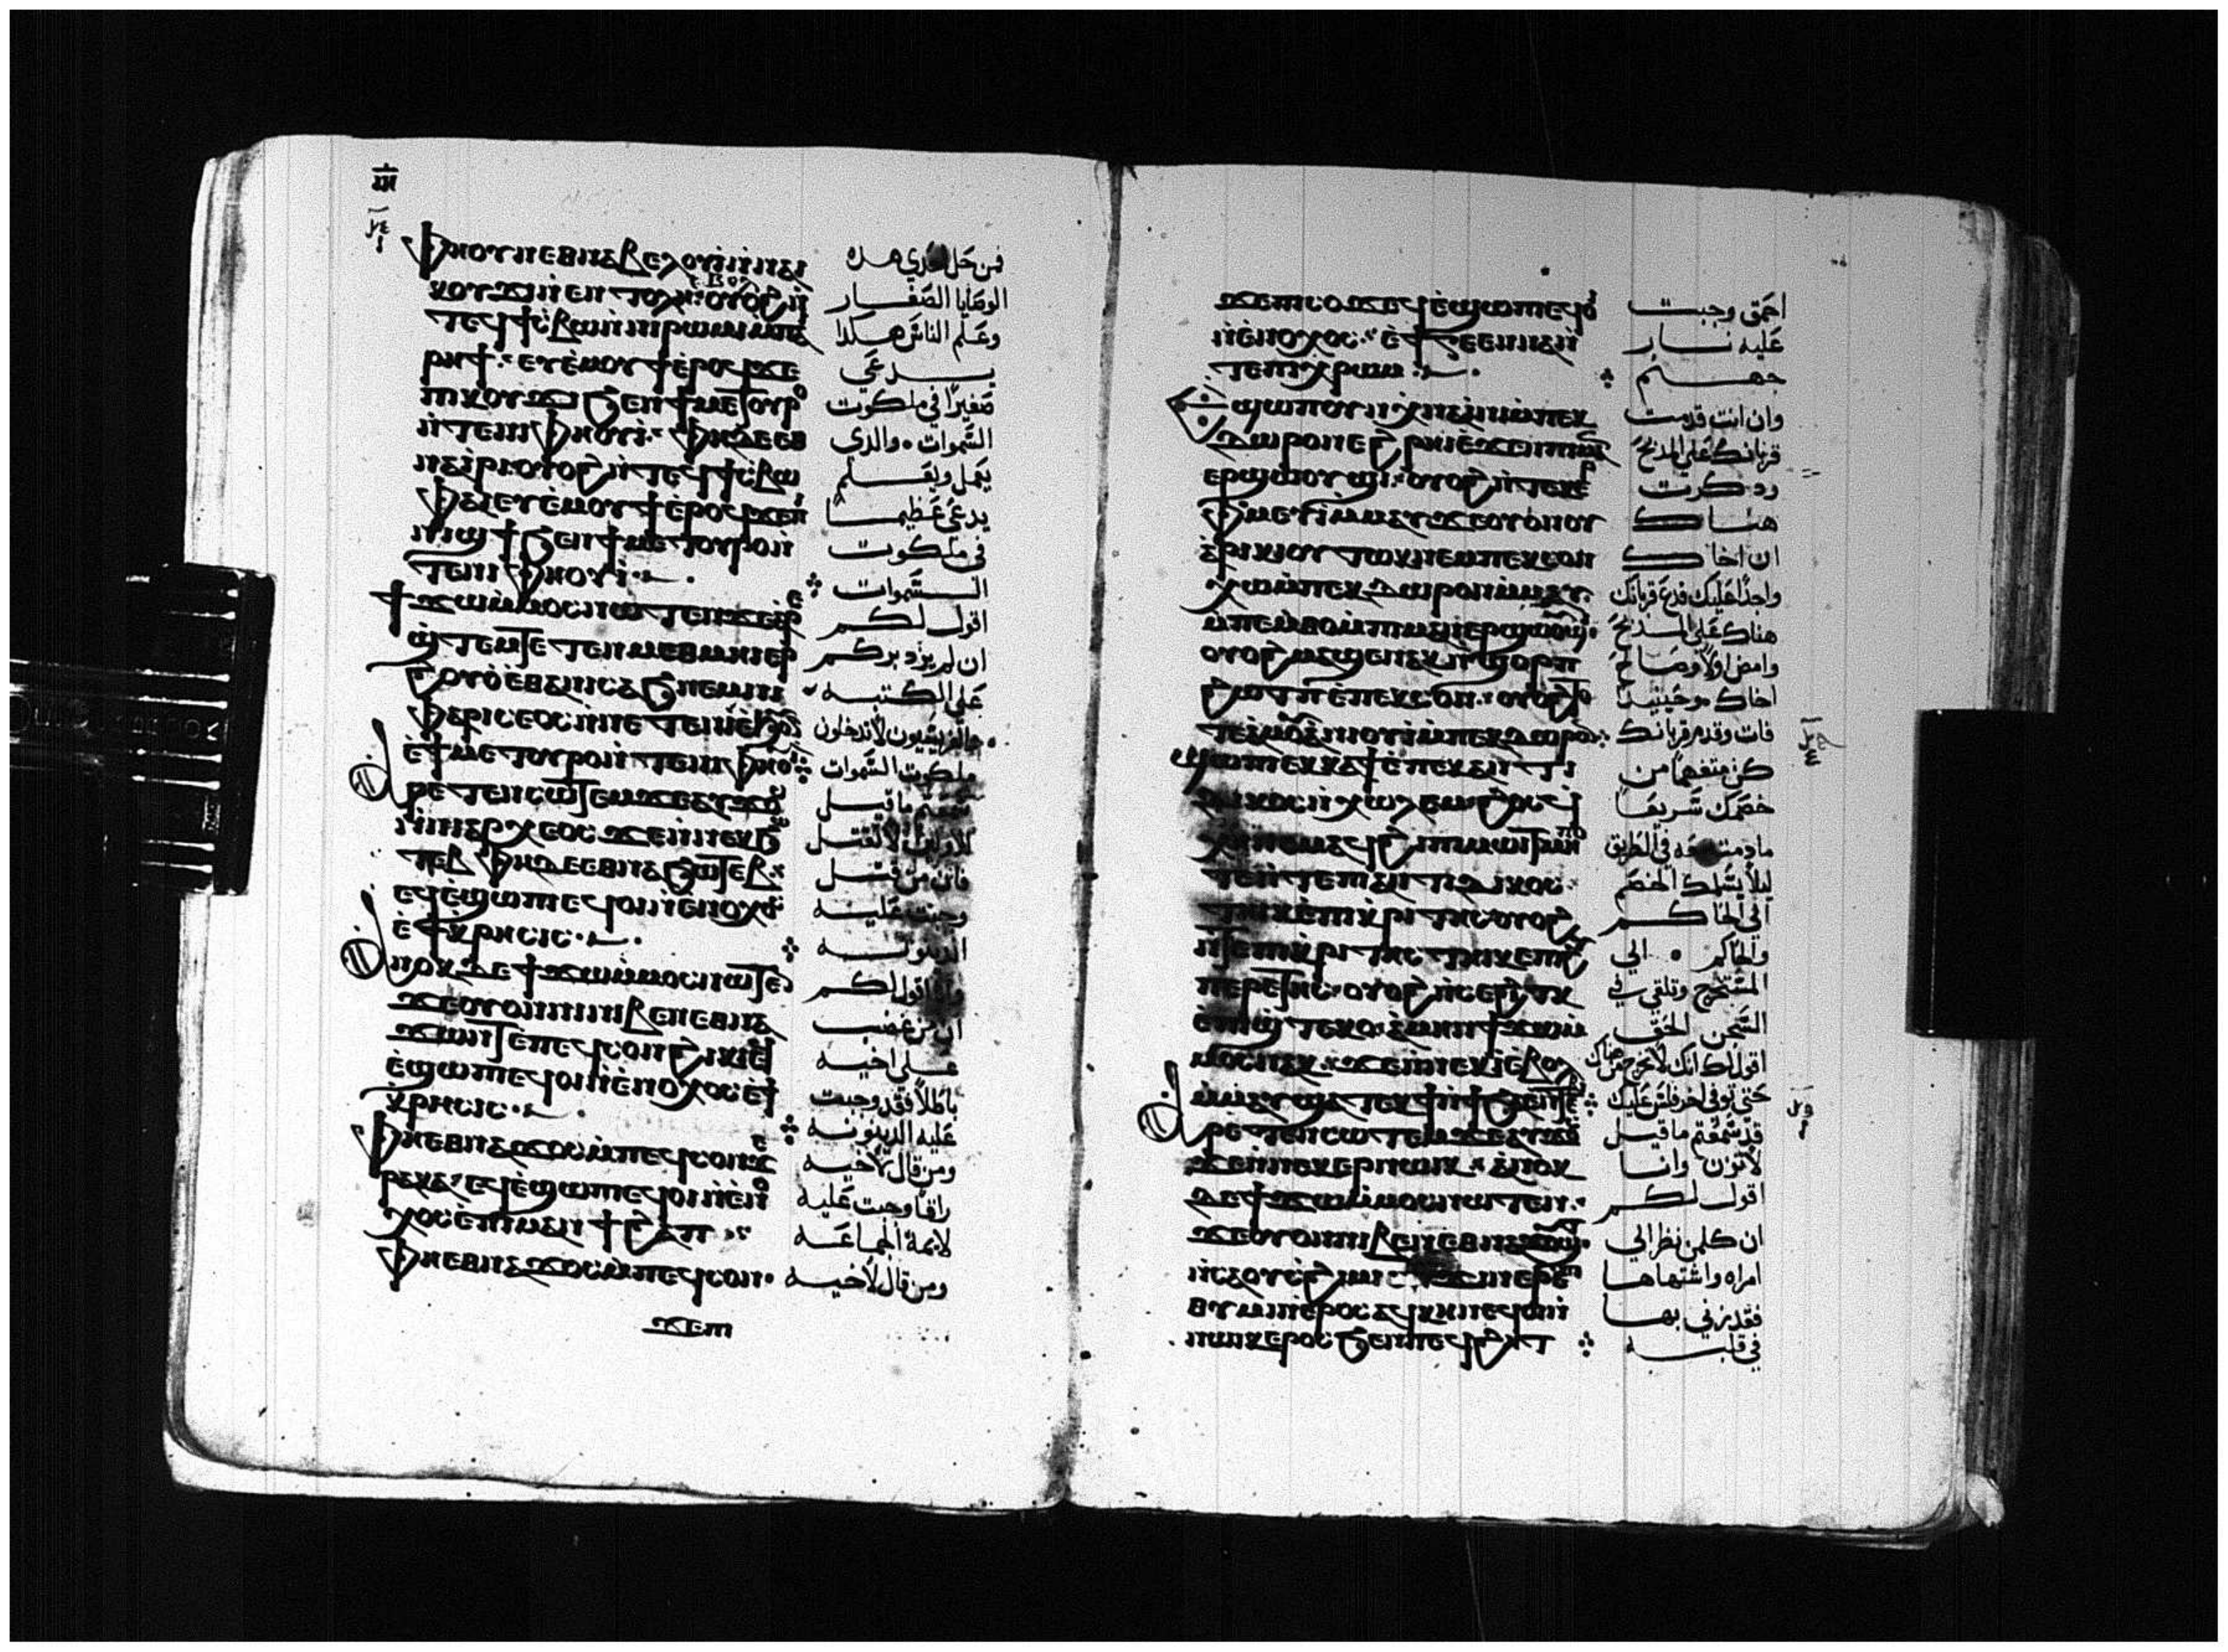 ⲫⲏⲟⲩⲛ ⲉⲑⲛⲁⲃⲉⲗ ⲟⲩⲓ ⲛⲛⲁⲓ
ⲕⲟⲩϫⲓ ⲛⲉⲛⲧⲟⲗⲏ ⲉⲃⲟⲗ ⲟⲩⲟϩ ⲛ
ⲧⲉϥϯⲥⲃⲱ ⲛⲛⲓⲣⲱⲙⲓ ⲙⲡⲁⲓ
ⲣⲏϯ ⲉⲩⲉⲙⲟⲩϯ ⲉⲣⲟϥ ϫⲉ
ⲡⲓⲕⲟⲩϫⲓ ϧⲉⲛ ϯⲙⲉⲧⲟⲩⲣⲟ
ⲛⲧⲉⲛⲓⲫⲏⲟⲩⲓ ⲫⲏ ⲇⲉ ⲉⲑ
ⲛⲁⲓⲣⲓ ⲟⲩⲟϩ ⲛⲧⲉϥϯⲥⲃⲱ
ⲫⲁⲓ ⲉⲩⲉⲙⲟⲩϯ ⲉⲣⲟϥ ϫⲉ ⲡⲓ
ⲛⲓϣϯ ϧⲉⲛ ϯⲙⲉⲧⲟⲩⲣⲟ ⲛ
ⲧⲉⲛⲓⲫⲏⲟⲩⲓ
ϯϫⲱ ⲙⲙⲟⲥ ⲛⲱⲧⲉⲛ ϫⲉ ⲁⲣⲉ
ϣⲧⲉⲙⲧⲉⲧⲉⲛⲙⲉⲑⲙⲏⲓ ⲉⲣ
ϩⲟⲩⲟ ⲉⲑⲁ ⲛⲓⲥⲁϧ ⲛⲉⲙ ⲛⲓ
ⲫⲁⲣⲓⲥⲉⲟⲥ ⲛⲛⲉⲧⲉⲛⲓ ⲉϧⲟⲩⲛ
ⲉϯⲙⲉⲧⲟⲩⲣⲟ ⲛⲧⲉⲛⲓⲫⲏⲟⲩⲓ
ⲁⲣⲉⲧⲉⲛⲥⲱⲧⲉⲙ ϫⲉ ⲁⲩϫⲟⲥ
ⲛⲛⲓⲁⲣⲭⲉⲟⲥ ϫⲉ ⲛⲛⲉⲕϧⲱ
ⲧⲉⲃ ⲫⲏ ⲇⲉ ⲉⲑⲛⲁϧⲱⲧⲉⲃ
ⲉϥⲉϣⲱⲡⲉ ϥⲟⲓ ⲛⲉⲛⲟⲭⲟⲥ
ⲉϯⲕⲣⲏⲥⲓⲥ
ⲁⲛⲟⲕ ⲇⲉ ϯϫⲱ ⲙⲙⲟⲥ ⲛⲱⲧⲉⲛ
ϫⲉ ⲟⲩⲟⲛ ⲛⲓⲃⲉⲛ ⲉⲑⲛⲁ
ϫⲱⲛⲧ ⲉⲡⲉϥⲥⲟⲛ ϩⲓⲕⲏ
ⲉϥⲉϣⲱⲡⲉ ϥⲟⲓ ⲛⲉⲛⲟⲭⲟⲥ ⲉϯ
ⲕⲣⲏⲥⲓⲥ
ⲫⲏ ⲉⲑⲛⲁϫⲟⲥ ⲙⲡⲉϥⲥⲟⲛ ϫⲉ
ⲣⲁⲕⲁ ⲉϥⲉϣⲱⲡⲉ ϥⲟⲓ ⲛⲉⲛⲟ
ⲭⲟⲥ ⲉⲡⲓⲙⲁⲛϯϩⲁⲡ
ⲫⲏ ⲉⲑⲛⲁϫⲟⲥ ⲙⲡⲉϥⲥⲟⲛ
ϫⲉ ⲡⲓ
فمن حل احدي هذه
الوصايا الصغار
وعلم الناس هكذا
يدعي
صغيرا في ملكوت
السموات والدى
يعمل ويعلم
يدعى عظيما
في ملكوت
السموات
اقول لكم
ان لم يزد بركم
على الكتبه
والفريسيون لا تدخلون
ملكوت السموات
سمعتم ما قيل
للاولين لا تقتل
فان من قتل
وجبت عليه
الدينونه
وانا اقول لكم
ان من غضب
على اخيه
باطلا فقد وجبت
عليه الدينونه
ومن قال لاخيه
راقا وجبت عليه
لايمة الجماعه
ومن قال لاخيه
ϫⲉ ⲡⲓⲥⲟϫ ⲉϥⲉϣⲱⲡⲉ ϥⲟⲓ
ⲛⲉⲛⲟⲭⲟⲥ ⲉϯⲅⲉⲉⲛⲛⲁ ⲛ
ⲧⲉ ⲡⲓⲭⲣⲱⲙ
ⲉϣⲱⲡ ⲟⲩⲛ ⲭⲛⲁⲓⲛⲓ ⲙⲡⲉⲕ
ⲇⲱⲣⲟⲛ ⲉϩⲣⲏⲓ ⲉϫⲉⲛ ⲡⲓⲙⲁⲛ
ⲉⲣϣⲱⲟⲩϣⲓ ⲟⲩⲟϩ ⲛⲧⲉⲕⲉⲣ
ⲫⲙⲉⲩⲓ ⲙⲙⲁⲩ ϫⲉ ⲟⲩⲟⲛ ⲟⲩ
ⲁⲣⲓⲕⲓ ⲟⲩⲧⲱⲕ ⲛⲉⲙ ⲡⲉⲕⲥⲟⲛ
ⲭⲱ ⲙⲡⲉⲕⲇⲱⲣⲟⲛ ⲙⲙⲁⲩ
ⲙⲡⲉⲙⲑⲟ ⲙⲡⲓⲙⲁⲛⲉⲣϣⲱⲟⲩϣⲓ
ⲟⲩⲟϩ ⲙⲁϣⲉⲛⲁⲕ ⲛϣⲟⲣⲡ
ϩⲱⲧⲡ ⲉⲡⲉⲕⲥⲟⲛ ⲟⲩⲟϩ ⲧⲟ
ⲧⲉ ⲁⲙⲟⲩ ⲁⲛⲓⲟⲩⲓ ⲙⲡⲉⲕⲇⲱⲣⲟⲛ
ϣⲱⲡⲉ ⲉⲕⲕⲁϯ ⲉⲡⲉⲕⲁⲛⲧⲓ
ⲇⲓⲕⲟⲥ ⲛⲭⲱⲗⲉⲙ ϩⲟⲥ
ⲭⲛⲉⲙⲁϥ ϩⲓ ⲡⲓⲙⲱⲓⲧ ⲙⲏⲡⲱⲥ
ⲛⲧⲉ ⲡⲓⲁⲛⲧⲓⲇⲓⲕⲟⲥ
ⲧⲏⲓⲕ ⲉⲡⲓⲕⲣⲓⲧⲏⲥ ⲟⲩⲟϩ
ⲛⲧⲉ ⲡⲓⲕⲣⲓⲧⲏⲥ ⲧⲏⲓⲕ ⲉⲡⲓϩⲩ
ⲡⲉⲣⲉⲧⲏⲥ ⲟⲩⲟϩ ⲛⲥⲉϩⲓⲧⲕ
ⲉⲡⲓϣⲧⲉⲕⲟ ⲁⲙⲏⲛ ϯϫⲱ ⲙ
ⲙⲟⲥ ⲛⲁⲕ ϫⲉ ⲛⲛⲉⲕⲓ ⲉⲃⲟⲗ
ⲙⲙⲁⲩ ϣⲁⲧⲉⲕϯ ⲛϯϧⲁⲉ ⲛⲧⲉ
ⲁⲣⲉⲧⲉⲛⲥⲱⲧⲉⲙ ϫⲉ ⲁⲩϫⲟⲥ
ϫⲉ ⲛⲛⲉⲕⲉⲣⲛⲱⲓⲕ ⲁⲛⲟⲕ
ⲇⲉ ϯϫⲱ ⲙⲙⲟⲥ ⲛⲱⲧⲉⲛ
ϫⲉ ⲟⲩⲟⲛ ⲛⲓⲃⲉⲛ ⲉⲑⲛⲁϫⲟⲩϣⲧ
ⲛⲥⲁ ⲟⲩⲥϩⲓⲙⲓ ⲉⲡϫⲓⲛⲉⲣⲉⲡⲓ
ⲑⲩⲙⲓⲛ ⲉⲣⲟⲥ ⲁϥⲕⲏⲛ ⲉϥⲟⲓ ⲛ
ⲛⲱⲓⲕ ⲉⲣⲟⲥ ϧⲉⲛ ⲡⲉϥϩⲏⲧ
احمق وجبت
عليه نار
جهنم
وان انت قدمت
قربانك على المذبح
وذكرت
هناك
ان اخاك
واجدا عليك فدع قربانك
هناك على المذبح
وامض اولا وصالح
اخاك وحينيذ
فات وقدم قربانك
كن متفهما من
خصمك سريعا
ما دمت معه في الطريق
ليلا يسلمك الخصم
الي الحاكم
والحاكم الي
المستخرج وتلقي في
السجن الحق
اقول لك انك لا تخرج من هناك
حتى توفى اخر فلس عليك
قد سمعتم ما قيل
لا تزن وانا
اقول لكم
ان كلمن نظر الي
امراه واشتهاها
فقد زني بها
في قلبه